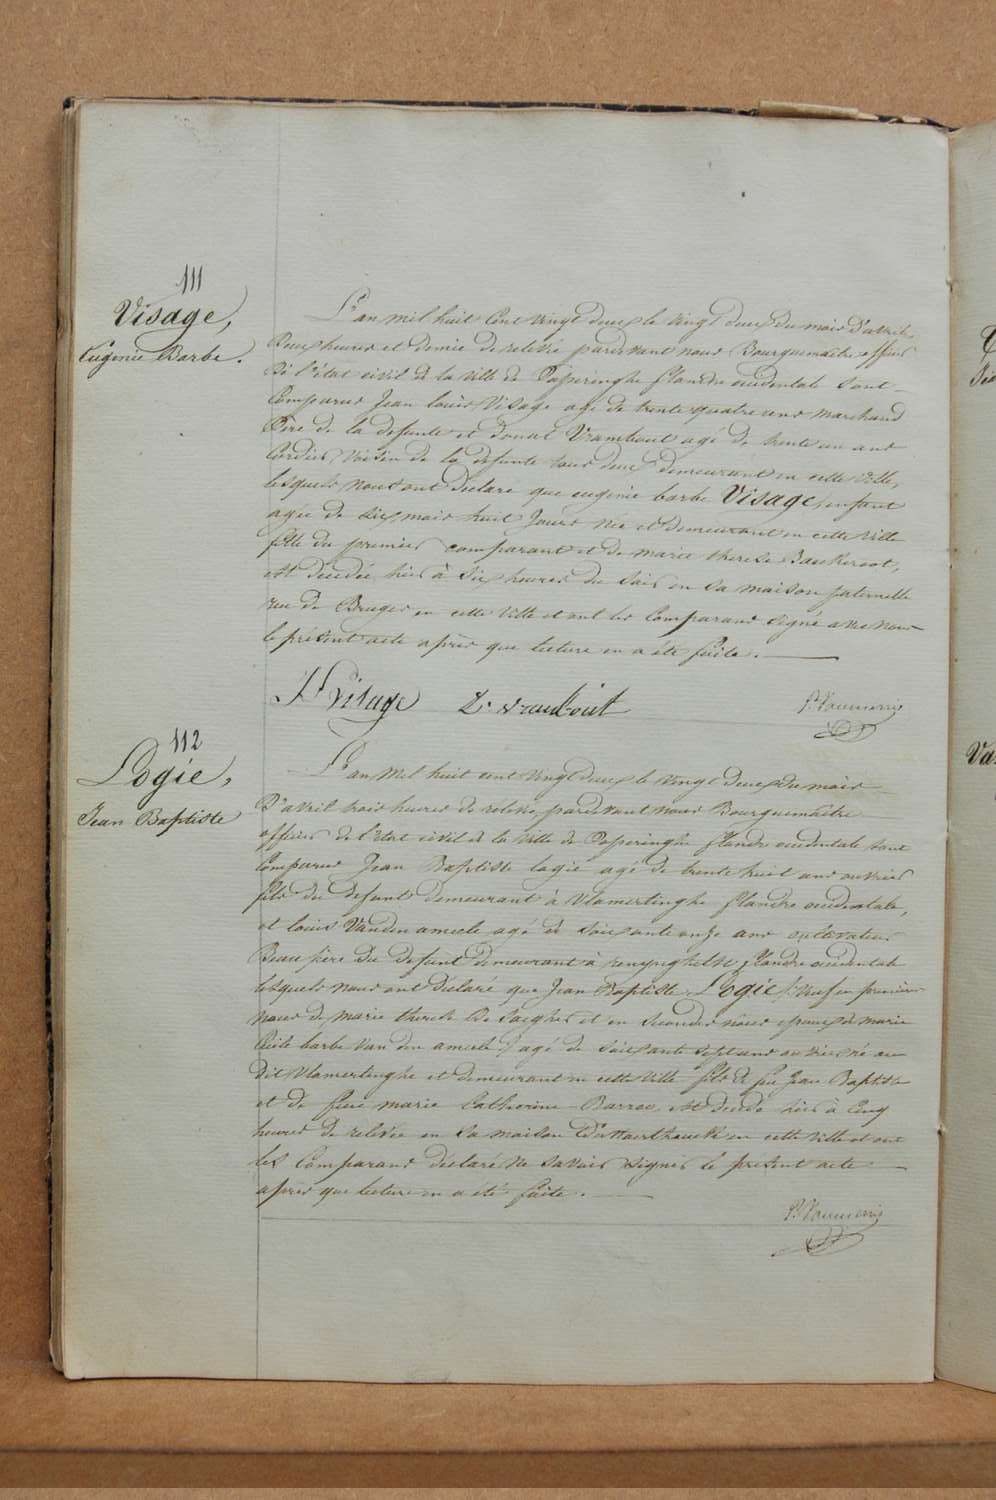 111
Visage,
Eugenie Barbe.
L'an mil huit cent vingt deux le vingt deux du mois d'avril,
Deux heures et demie de relevée pardevant nous Bourguemaitre officier
de l'état civil de la ville de Poperinghe flandre occidentale sont
Comparus Jean louis Visage agé de trente quatre ans marchand
Père de la defunte et donat Vrambout agé de trente un ans
Cordier, Voisin de la defunte tous deux demeurant en cette ville,
lesquels nous ont déclaré que eugenie barbe Visage, enfant
agée de six mois huit Jours née et demeurant en cette ville
fille du premier comparant et de marie therese
est décédée hier à six heures du soir en sa maison paternelle
rue de Bruges en cette ville et ont les Comparans signé avec nous
le présent acte après que lecture en a été faite.
Visage
P. Vanmerris
112
Logie,
Jean Baptiste
L'an Mil huit cent vingt deux le vingt deux du mois
D'avril trois heures de relevée, pardevant nous Bourguemaitre
officier de l'état civil de la ville de Poperinghe flandre occidentale sont
Comparus Jean Baptiste logie agé de trente huit ans ouvrier
fils du defunt demeurant à Vlamertinghe flandre occidentale,
et louis Vanden ameele agé de soixante onze ans cultivateur
Beau père du defunt demeurant à renynghelst flandre occidentale
lesquels nous ont déclaré que Jean Baptiste Logie (veuf en premières
noces de marie therese De Saegher et en secondes noces epoux de marie
Cecile barbe Van den ameele) agé de soixante sept ans ouvrier né au
dit Vlamertinghe et demeurant en cette ville fils de feu Jean Baptiste
et de feue marie Catherine est décédé hier à Cinq
heures de relevée en sa maison en cette ville et ont
les Comparans déclaré ne savoir signer le présent acte
après que lecture en a été faite.
P. Vanmerris